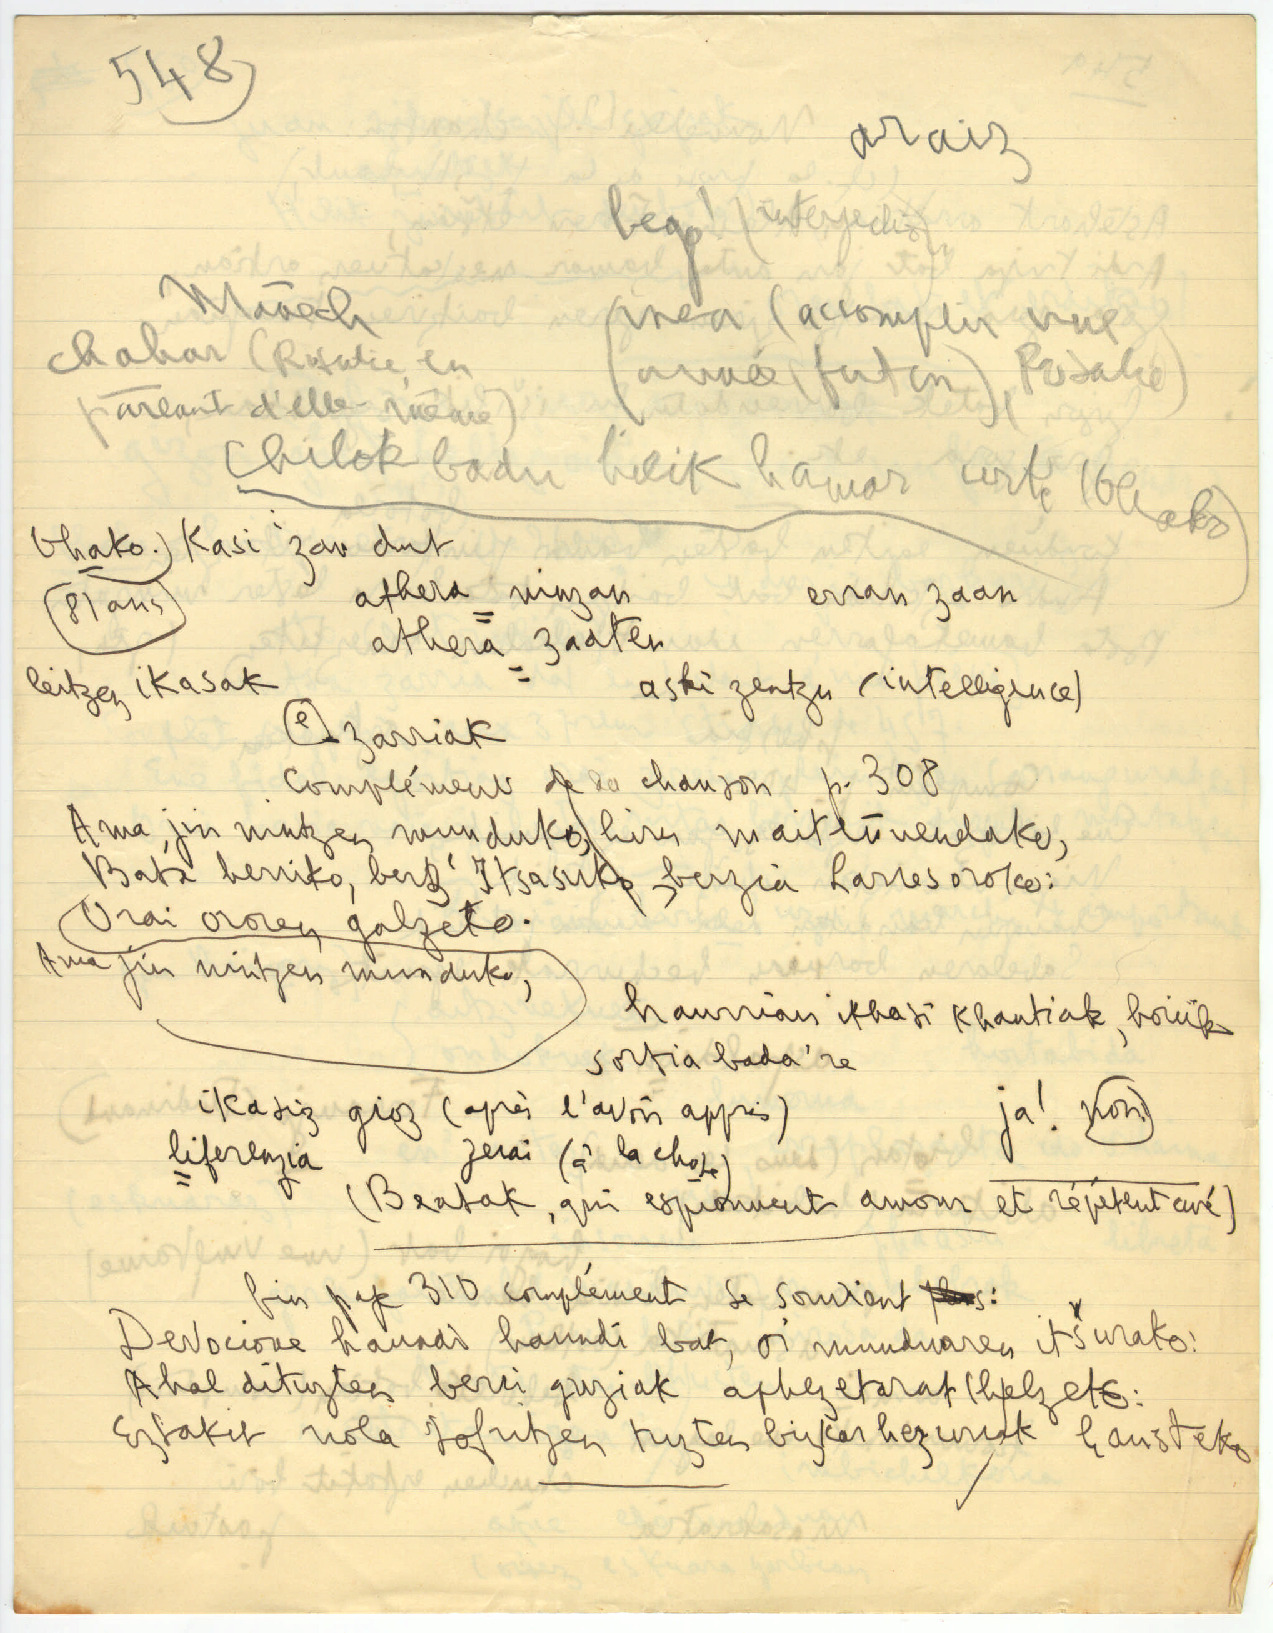 548
araiz
beap! (interjection)
Mañech
chahar (Rosalie, en
parlant d'elle-même)
(mea (accomplir une
année, futon), Rosalie)
Chilok badu bilik hamar urthe (bhako)
bhako.) Kasi zau dut
(81 ans)
athera ninzan erran zaan
athera zaaten
leitzen ikasak
aski zentzu (intelligence)
(e) zarriak
complément de la chanson p. 308
Ama, jin nintzen munduko, hiru maithūnendako,
Bata herriko, berz' Itsasuko, berzia Larresoroko:
Orai ororen galzeko.
Ama jin nintzen munduko,
haurrian ikhasi khantiak, hoiik
sortia bada're
ikasiz gioz (après l'avoir appris)
ja! (non)
liferenzia zerai (à la chose)
(Beatak, qui espionnent amour et répètent curé)
fin page 310 complément se souvient:
Devocione haundi haundi bat, oi munduaren itšurako:
Ahal dituzten berri guziak aphezetarat helzeko:
Eztakit nola sofritzen tuzten bizkar hezurrak hausteko